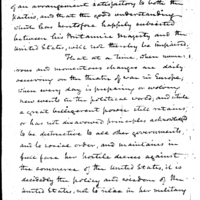 of an arrangement satisfactory to both the
parties, and that the good understanding
which has heretofore happily subsisted
between his Britannic Majesty and the
United States, will not thereby be impaired.
That at a time, when numer-
ous and momentous changes are daily
occurring on the theatre of war in Europe,
when every day is preparing or
new events in the political world, and while
a great belligerent power still retains,
or has not disavowed principles acknowledged
to be destructive to all other governments,
and to social order, and maintains in
full force her hostile decrees against
the commerce of the United States, it is
decidedly the policy and wisdom of the
United States, not to relax in her military